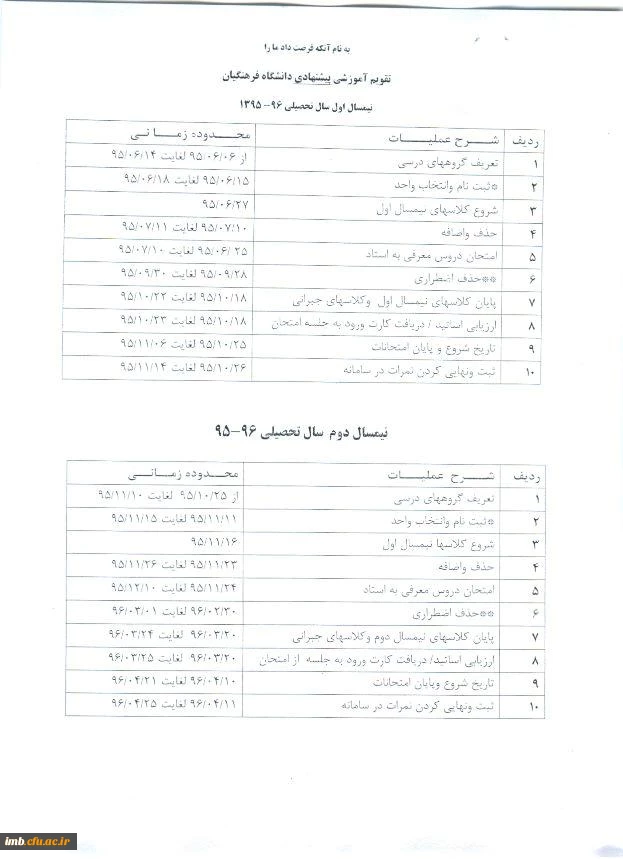 به نام آنکه فرصت داد ما را
تقویم آموزشی پیشنهادی دانشگاه فرهنگیان
نیمسال اول سال تحصیلی ۹۶-۱۳۹۵
ردیف شرح عملیات محدوده زمانی
۱ تعریف گروههای درسی از ۹۵/۰۶/۰۶ لغایت ۹۵/۰۶/۱۴
۲ *ثبت نام وانتخاب واحد ۹۵/۰۶/۱۵ لغایت ۹۵/۰۶/۱۸
۳ شروع کلاسهای نیمسال اول ۹۵/۰۶/۲۷
۴ حذف واضافه ۹۵/۰۷/۱۰ لغایت ۹۵/۰۷/۱۱
۵ امتحان دروس معرفی به استاد ۹۵/۰۶/۲۵ لغایت ۹۵/۰۷/۱۰
۶ **حذف اضطراری ۹۵/۰۹/۲۸ لغایت ۹۵/۰۹/۳۰
۷ پایان کلاسهای نیمسال اول وکلاسهای جبرانی ۹۵/۱۰/۱۸ لغایت ۹۵/۱۰/۲۲
۸ ارزیابی اساتید / دریافت کارت ورود به جلسه امتحان ۹۵/۱۰/۱۸ لغایت ۹۵/۱۰/۲۳
۹ تاریخ شروع و پایان امتحانات ۹۵/۱۰/۲۵ لغایت ۹۵/۱۱/۰۶
۱۰ ثبت ونهایی کردن نمرات در سامانه ۹۵/۱۰/۲۶ لغایت ۹۵/۱۱/۱۴
نیمسال دوم سال تحصیلی ۹۶-۹۵
ردیف شرح عملیات محدوده زمانی
۱ تعریف گروههای درسی از ۹۵/۱۰/۲۵ لغایت ۹۵/۱۱/۱۰
۲ *ثبت نام وانتخاب واحد ۹۵/۱۱/۱۱ لغایت ۹۵/۱۱/۱۵
۳ شروع کلاسها نیمسال اول ۹۵/۱۱/۱۶
۴ حذف واضافه ۹۵/۱۱/۲۳ لغایت ۹۵/۱۱/۲۶
۵ امتحان دروس معرفی به استاد ۹۵/۱۱/۲۴ لغایت ۹۵/۱۲/۱۰
۶ **حذف اضطراری ۹۶/۰۲/۳۰ لغایت ۹۶/۰۳/۰۱
۷ پایان کلاسهای نیمسال دوم وکلاسهای جبرانی ۹۶/۰۳/۲۰ لغایت ۹۶/۰۳/۲۴
۸ ارزیابی اساتید/ دریافت کارت ورود به جلسه از امتحان ۹۶/۰۳/۲۰ لغایت ۹۶/۰۳/۲۵
۹ تاریخ شروع وپایان امتحانات ۹۶/۰۴/۱۰ لغایت ۹۶/۰۴/۲۱
۱۰ ثبت ونهایی کردن نمرات در سامانه ۹۶/۰۴/۱۱ لغایت ۹۶/۰۴/۲۵
imb.cfu.ac.ir